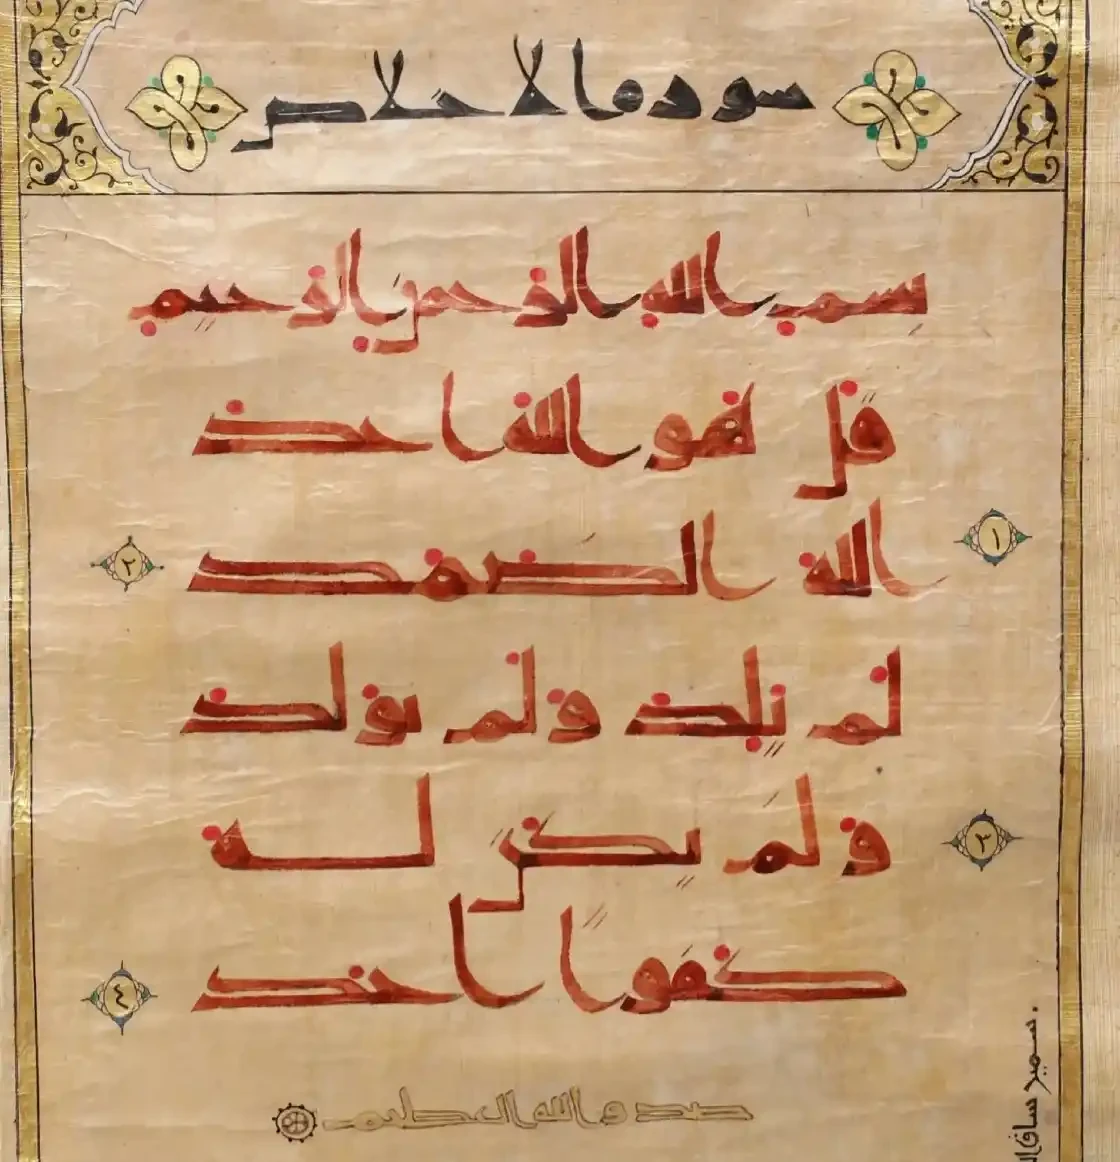 سورة الاخلاص
بسم الله الرحمن الرحيم
قل هو الله احد
١ الله الصمد ٢
لم يلد ولم يولد
٣ ولم يكن له
كفوا احد ٤
صدق الله العظيم
سمير